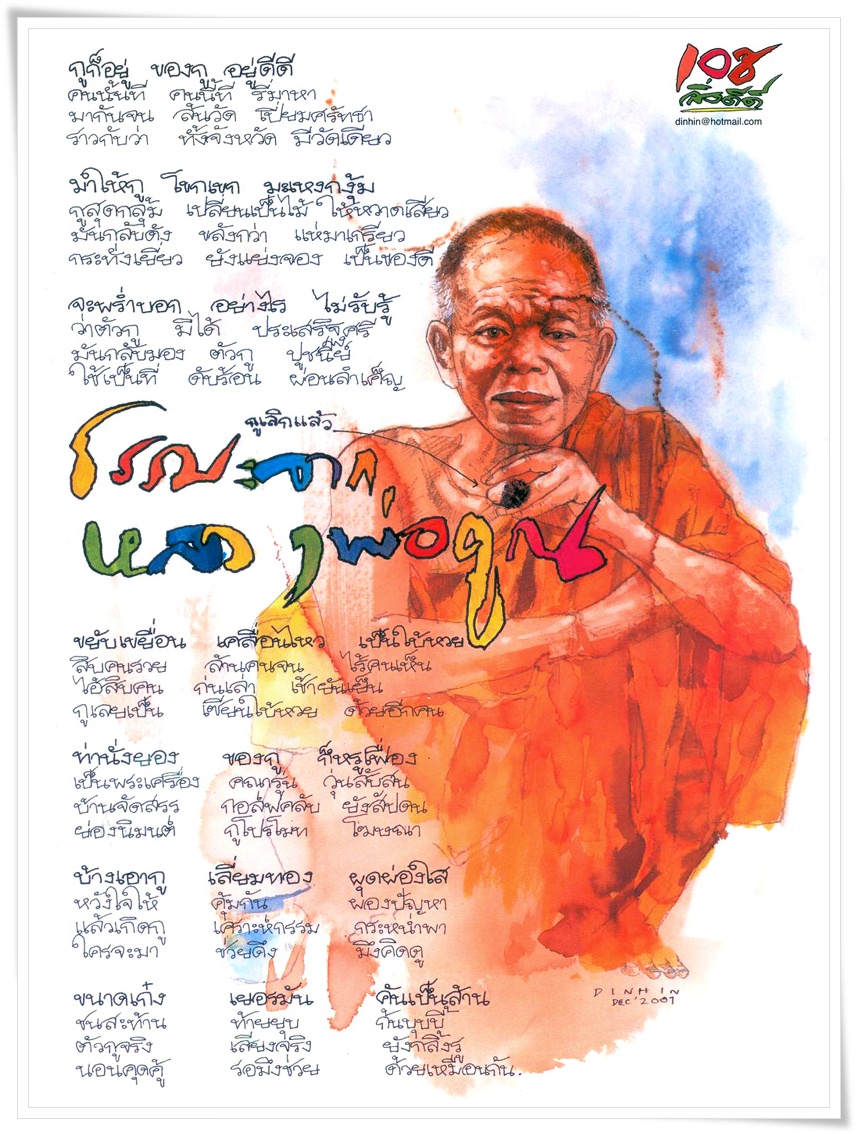 ๑๐๘
สิ่งดีดี
dinhin@hotmail.com
กูก็อยู่ ของกู อยู่ดีดี
คนนั้นที่ คนนี้ที รี่มาหา
มากันจน ล้นวัด เปี่ยมศรัทธา
ราวกับว่า ทั้งจังหวัด มีวัดเดียว
ทำให้กู โขกเขก มะเหงกงุ้ม
กูสุดกลุ้ม เปลี่ยนเป็นไม้ ให้หวาดเสียว
มันกลับดัง ขลังกว่า แห่มาเกรียว
กระทั่งเยี่ยว ยังแย่งจอง เป็นของดี
จะพร่ำบอก อย่างไร ไม่รับรู้
ว่าตัวกู มิได้ ประเสริฐศรี
มันกลับมอง ตัวกู ปูชนีย์
ใช้เป็นที่ ดับร้อน ผ่อนลำเค็ญ
กูเลิกแล้ว
ธรรมะจาก
หลวงพ่อคูณ
ขยับเขยื่อน เคลื่อนไหว เป็นใบ้หวย
สิบคนรวย ล้านคนจน ไร้คนเห็น
ไอ้สิบคน ก่นเล่า เช้ายันเย็น
กูเลยเป็น เซียนใบ้หวย ด้วยอีกคน
ท่านั่งยอง ของกู ก็หรูเฟื่อง
เป็นพระเครื่อง คณารุ่น วุ่นสับสน
บ้านจัดสรร กอล์ฟคลับ ยังสัปดน
ย่องนิมนต์ กูโปรโมท โฆษณา
บ้างเอากู เลี่ยมทอง ผุดผ่องใส
หวังใจให้ คุ้มกัน ผองปัญหา
แล้วเกิดกู เคราะห์กรรม กระหน่ำพา
ใครจะมา ช่วยดึง มึงคิดดู
ขนาดเก๋ง เยอรมัน คันเป็นล้าน
ชนสะท้าน ท้ายยุบ ก้นบุบบี้
ตัวกูจริง เสียงจริง ยังกลิ้งรู
นอนคุดคู้ รอมึงช่วย ด้วยเหมือนกัน.
DINHIN
DEC'2001